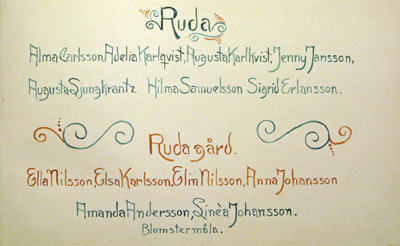 Ruda
Alma Carlsson, Adelia Karlqvist, Augusta Karlkvist, Jenny Jansson,
Augusta Sjungkrantz Hilma Samuelsson Sigrid Erlansson.
Ruda gård.
Ella Nilsson, Elsa Karlsson, Elin Nilsson, Anna Johansson
Amanda Andersson, Linèa Johansson.
Blomstermåla.